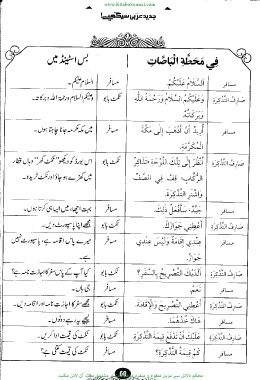 www.KitaboSunnat.com
جدید عربی سیکھیے!
فِي مَحَطَّةِ الْبَاصَاتِ بس اسٹینڈ میں
مسافر اَلسَّلَامُ عَلَيْكُمْ. مسافر السلام علیکم۔
صَارِفُ التَّذْكِرَةِ وَعَلَيْكُمُ السَّلَامُ وَرَحْمَةُ اللّٰهِ وَبَرَكَاتُهُ ٹکٹ بابو وعلیکم السلام ورحمۃ اللہ وبرکاتہ۔
مسافر أُرِيدُ أَنْ أَذْهَبَ إِلَى مَكَّةَ الْمُكَرَّمَةِ. مسافر میں مکہ مکرمہ جانا چاہتا ہوں۔
صَارِفُ التَّذْكِرَةِ اُنْظُرْ إِلَى تِلْكَ اللَّوْحَةِ الرُّكَّابِ، قِفْ فِي الصَّفِّ وَاشْتَرِ التَّذْكِرَةَ. ٹکٹ بابو اس بورڈ کو دیکھو "ٹکٹ گھر" وہاں قطار میں کھڑے ہو جاؤ اور ٹکٹ خریدو۔
مسافر جَيِّدٌ، سَأَفْعَلُ ذٰلِكَ. مسافر بہت اچھا، میں ایسا ہی کرتا ہوں۔
صَارِفُ التَّذْكِرَةِ أَعْطِنِي جَوَازَكَ. ٹکٹ بابو مجھے اپنا پاسپورٹ دیں۔
مسافر عِنْدِي إِقَامَةٌ وَلَيْسَ عِنْدِي جَوَازٌ. مسافر میرے پاس اقامہ ہے، پاسپورٹ نہیں ہے۔
صَارِفُ التَّذْكِرَةِ أَلَدَيْكَ التَّصْرِيحُ بِالسَّفَرِ؟ ٹکٹ بابو کیا آپ کے پاس سفر کا اجازت نامہ ہے؟
مسافر نَعَمْ. مسافر جی ہاں۔
صَارِفُ التَّذْكِرَةِ أَعْطِنِي التَّصْرِيحَ وَالْإِقَامَةَ. ٹکٹ بابو مجھے سفر کا اجازت نامہ اور اقامہ دیں۔
مسافر هَاكَ خُذْهُمَا. مسافر لیجیے یہ رہے دونوں۔
صَارِفُ التَّذْكِرَةِ عَلَيْكَ أَنْ تَدْفَعَ قِيمَةَ التَّذْكِرَةِ. ٹکٹ بابو ٹکٹ کی قیمت ادا کریں۔
مسافر كَمْ قِيمَةُ التَّذْكِرَةِ؟ مسافر ٹکٹ کی قیمت کتنی ہے؟
60
محکم دلائل سے مزین متنوع و منفرد موضوعات پر مشتمل مفت آن لائن مکتبہ